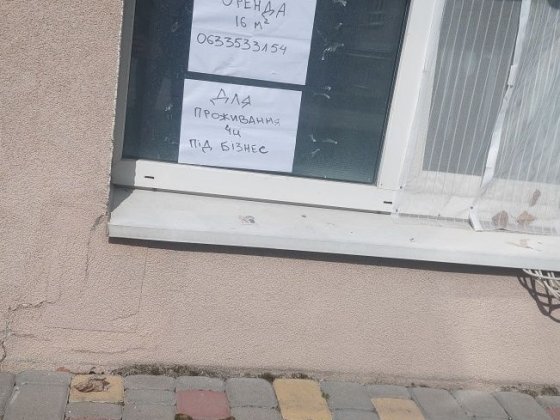 ОРЕНДА
16 м²
0633533154
ДЛЯ
ПРОЖИВАННЯ
ЧИ
ПІД БІЗНЕС